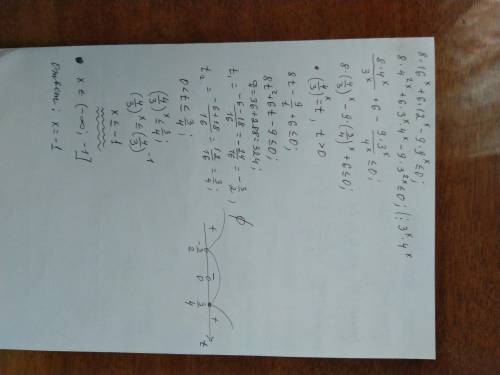 8·16ˣ+6·12ˣ-9·9ˣ≤0;
8·4²ˣ+6·3ˣ·4ˣ-9·3²ˣ≤0; |: 3ˣ·4ˣ
8·4ˣ/3ˣ +6 - 9·3ˣ/4ˣ ≤0;
8·(4/3)ˣ-9·(3/4)ˣ+6≤0;
• (4/3)ˣ=t, t>0
8t - 9/t +6≤0;
8t²+6t-9≤0;
D=36+288=324;
t₁ = (-6-18)/16 = -24/16 = -3/2; ∅
t₂ = (-6+18)/16 = 12/16 = 3/4;
+ -3/2 - 0 3/4 + t
0<t≤3/4;
(4/3)ˣ≤3/4;
(4/3)ˣ≤(4/3)⁻¹
x≤-1
• x∈(-∞; -1]
Ответ: x=-1